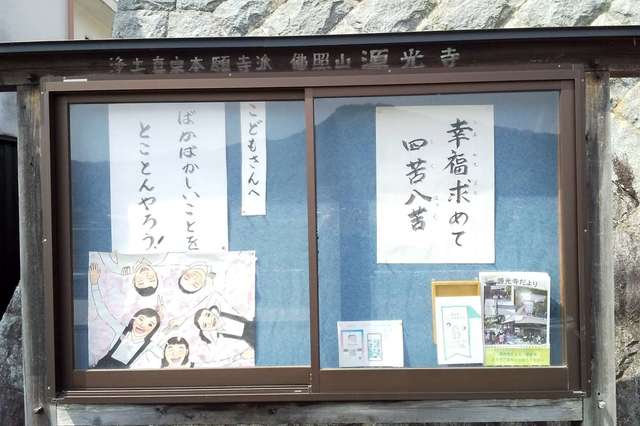 浄土真宗本願寺派 佛照山 源光寺
こどもさんへ
ばかばかしいことを
とことんやろう!
幸福求めて
四苦八苦
源光寺だより